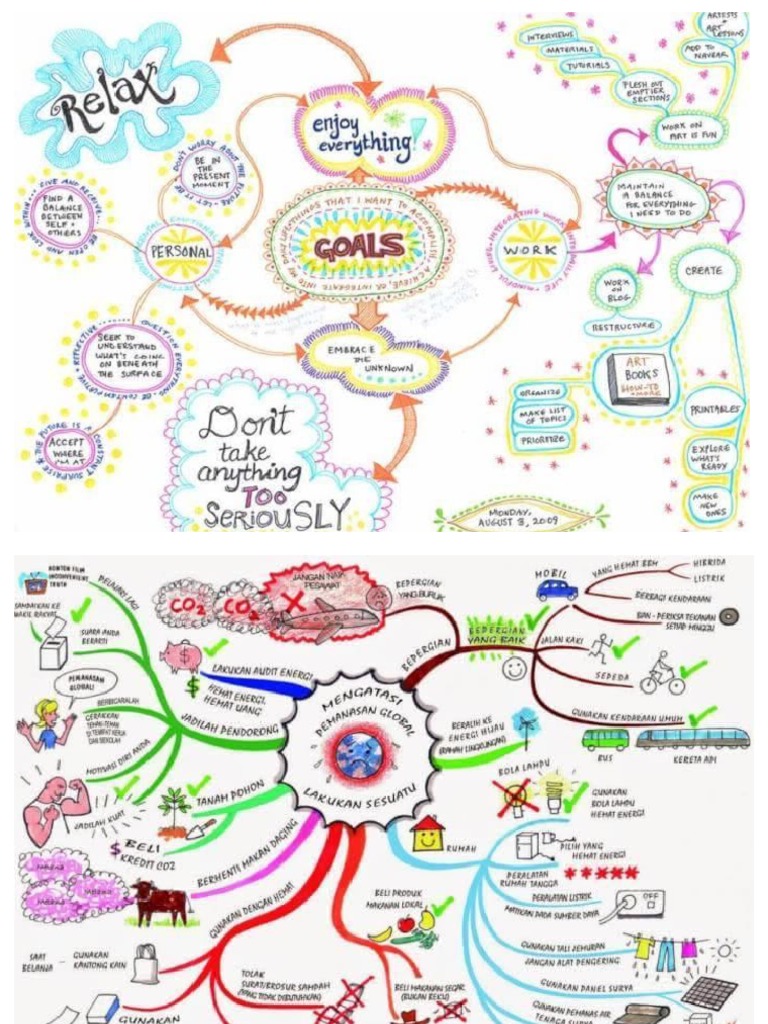 Relax
enjoy
everything!
BE IN
THE
PRESENT
MOMENT
GIVE AND RECEIVE...
FIND A
BALANCE
BETWEEN
SELF +
OTHERS
PERSONAL
THINGS THAT I WANT TO ACCOMPLISH, ACHIEVE, OR INTEGRATE INTO MY DAILY LIFE
GOALS
WORK
SEEK TO
UNDERSTAND
WHAT'S GOING
ON BENEATH
THE SURFACE
QUESTION EVERYTHING
THE FUTURE IS A CONSTANT SURPRISE
ACCEPT
WHERE
I'M AT
EMBRACE
THE
UNKNOWN
Don't
take
anything
TOO
SERIOUSLY
MONDAY,
AUGUST 3, 2009
INTERVIEWS
MATERIALS
TUTORIALS
FLESH OUT
EMPTIER
SECTIONS
ARTISTS
+ ART
LESSONS
ADD TO
NAVBAR
WORK ON
ART IS FUN
MAINTAIN
A BALANCE
FOR EVERYTHING
I NEED TO DO
CREATE
WORK
ON
BLOG
RESTRUCTURE
ART
BOOKS
HOW-TO
ORGANIZE
MAKE LIST
OF TOPICS
PRIORITIZE
PRINTABLES
EXPLORE
WHAT'S
READY
MAKE
NEW
ONES
MENGATASI
PEMANASAN GLOBAL
LAKUKAN SESUATU
TONTON FILM
INCONVENIENT
TRUTH
PELAJARI LAGI
SAMPAIKAN KE
WAKIL RAKYAT
SUARA ANDA
BERARTI
PEMANASAN
GLOBAL!
BERBICARALAH
GERAKKAN
TEMAN-TEMAN
DI TEMPAT KERJA
DAN SEKOLAH
MOTIVASI DIRI ANDA
JADILAH KUAT
JADILAH PENDORONG
CO2
CO2
JANGAN NAIK
PESAWAT
BEPERGIAN
YANG BURUK
BEPERGIAN
BEPERGIAN
YANG BAIK
MOBIL
YANG HEMAT BBM
HIBRIDA
LISTRIK
BERBAGI KENDARAAN
BAN - PERIKSA TEKANAN
SETIAP MINGGU
JALAN KAKI
SEPEDA
GUNAKAN KENDARAAN UMUM
BUS
KERETA API
$
LAKUKAN AUDIT ENERGI
HEMAT ENERGI,
HEMAT UANG
BERALIH KE
ENERGI HIJAU
(RAMAH LINGKUNGAN)
TANAM POHON
$ BELI
KREDIT CO2
BERHENTI MAKAN DAGING
GUNAKAN DENGAN HEMAT
SAAT
BELANJA
GUNAKAN
KANTONG KAIN
GUNAKAN
TOLAK
SURAT/BROSUR SAMPAH
(YANG TIDAK DIBUTUHKAN)
BELI PRODUK
MAKANAN LOKAL
BELI MAKANAN SEGAR
(BUKAN BEKU)
RUMAH
BOLA LAMPU
GUNAKAN
BOLA LAMPU
HEMAT ENERGI
PERALATAN
RUMAH TANGGA
PILIH YANG
HEMAT ENERGI
PERALATAN LISTRIK
MATIKAN PADA SUMBER DAYA
OFF
GUNAKAN TALI JEMURAN
JANGAN ALAT PENGERING
GUNAKAN PANEL SURYA
GUNAKAN PEMANAS AIR